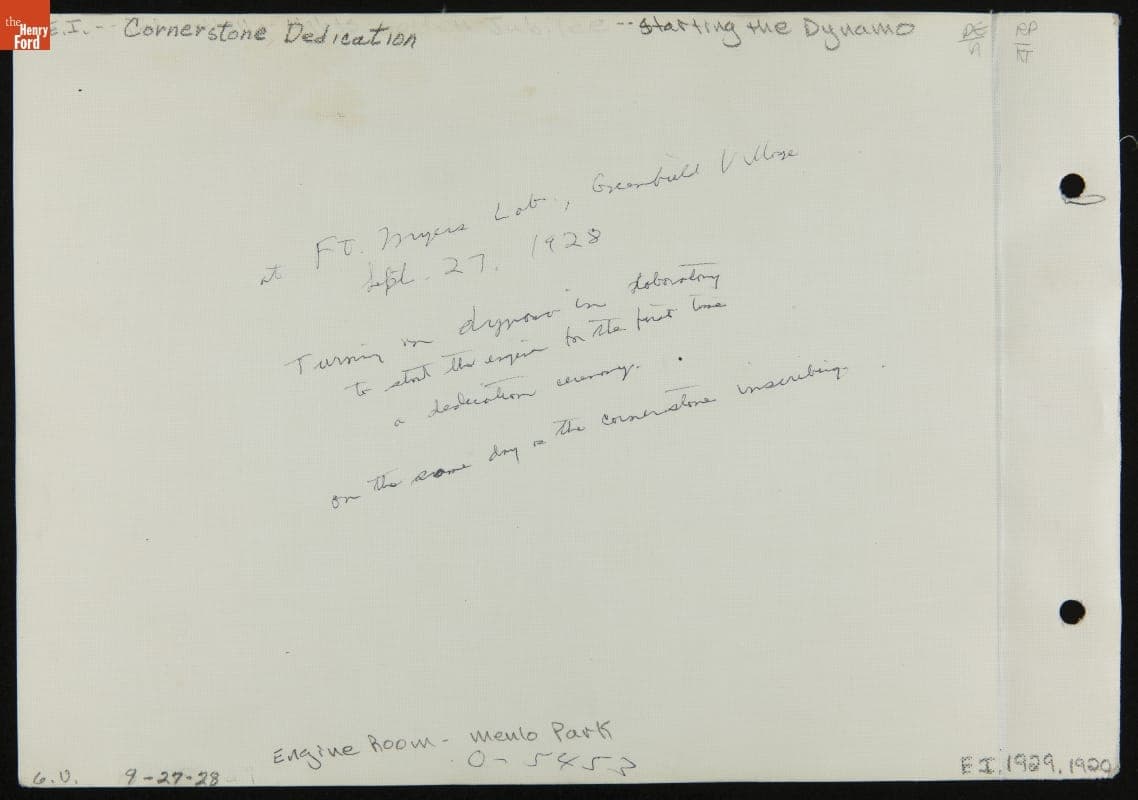 the Henry Ford
E.I. -- Cornerstone Dedication -- Starting the Dynamo
DE
A
RP
NT
at Ft. Myers Lab., Greenfield Village
Sept. 27. 1928
Turning on dynamo in laboratory
to start the engine for the first time
a dedication ceremony.
on the same day as the cornerstone inscribing.
Engine Room - Menlo Park
O-5453
G.V. 9-27-28
E.I. 1929.1920